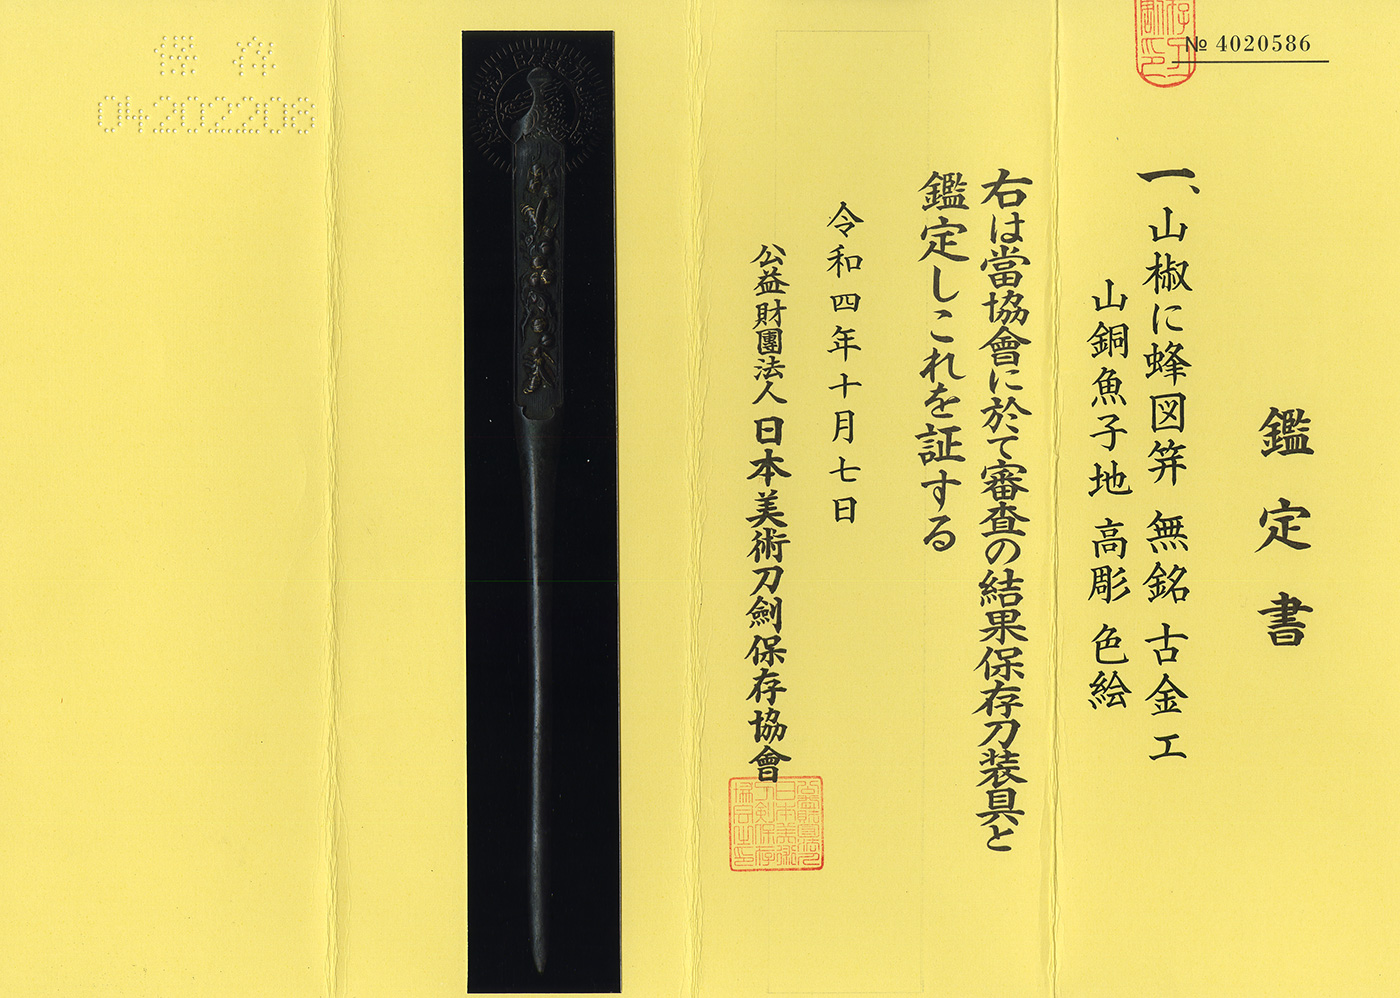 № 4020586
鑑定書
一、山椒に蜂図笄 無銘 古金工
山銅魚子地 高彫 色絵
右は當協會に於て審査の結果保存刀装具と
鑑定しこれを証する
令和四年十月七日
公益財團法人 日本美術刀劍保存協會
保存
04202208